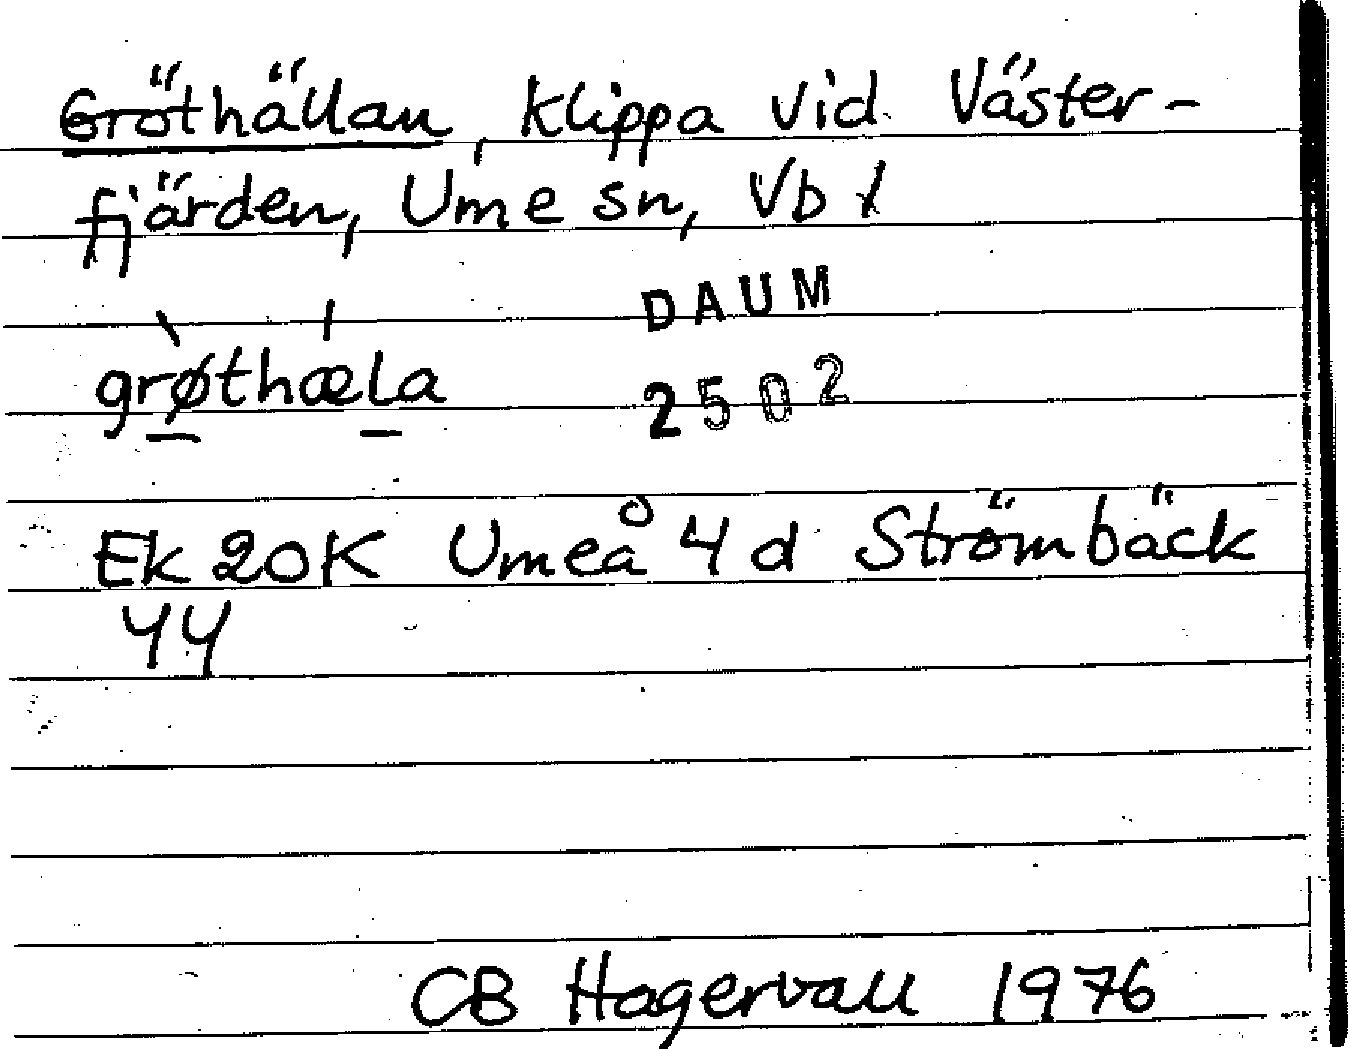 Gröthällan, klippa vid Väster-
fjärden, Ume sn, Vb l
DAUM
grøthæla
2502
Ek 20K Umeå 4 d Strömbäck
44
CB Hagervall 1976